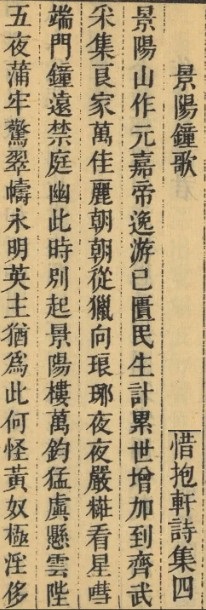 景陽鐘歌
惜抱軒詩集四
景陽山作元嘉帝逸游已匱民生計累世增加到齊武
采集良家萬佳麗朝朝從獵向琅琊夜夜嚴糚看星嘒
端門鐘遠禁庭幽此時別起景陽樓萬鈞猛虡懸雲陛
五夜蒲牢驚翠幬永明英主猶為此何怪黃奴極淫侈